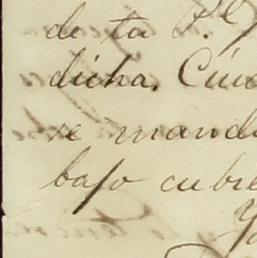 de ta P.l
dicha. Ciu
se mand
bajo cubre